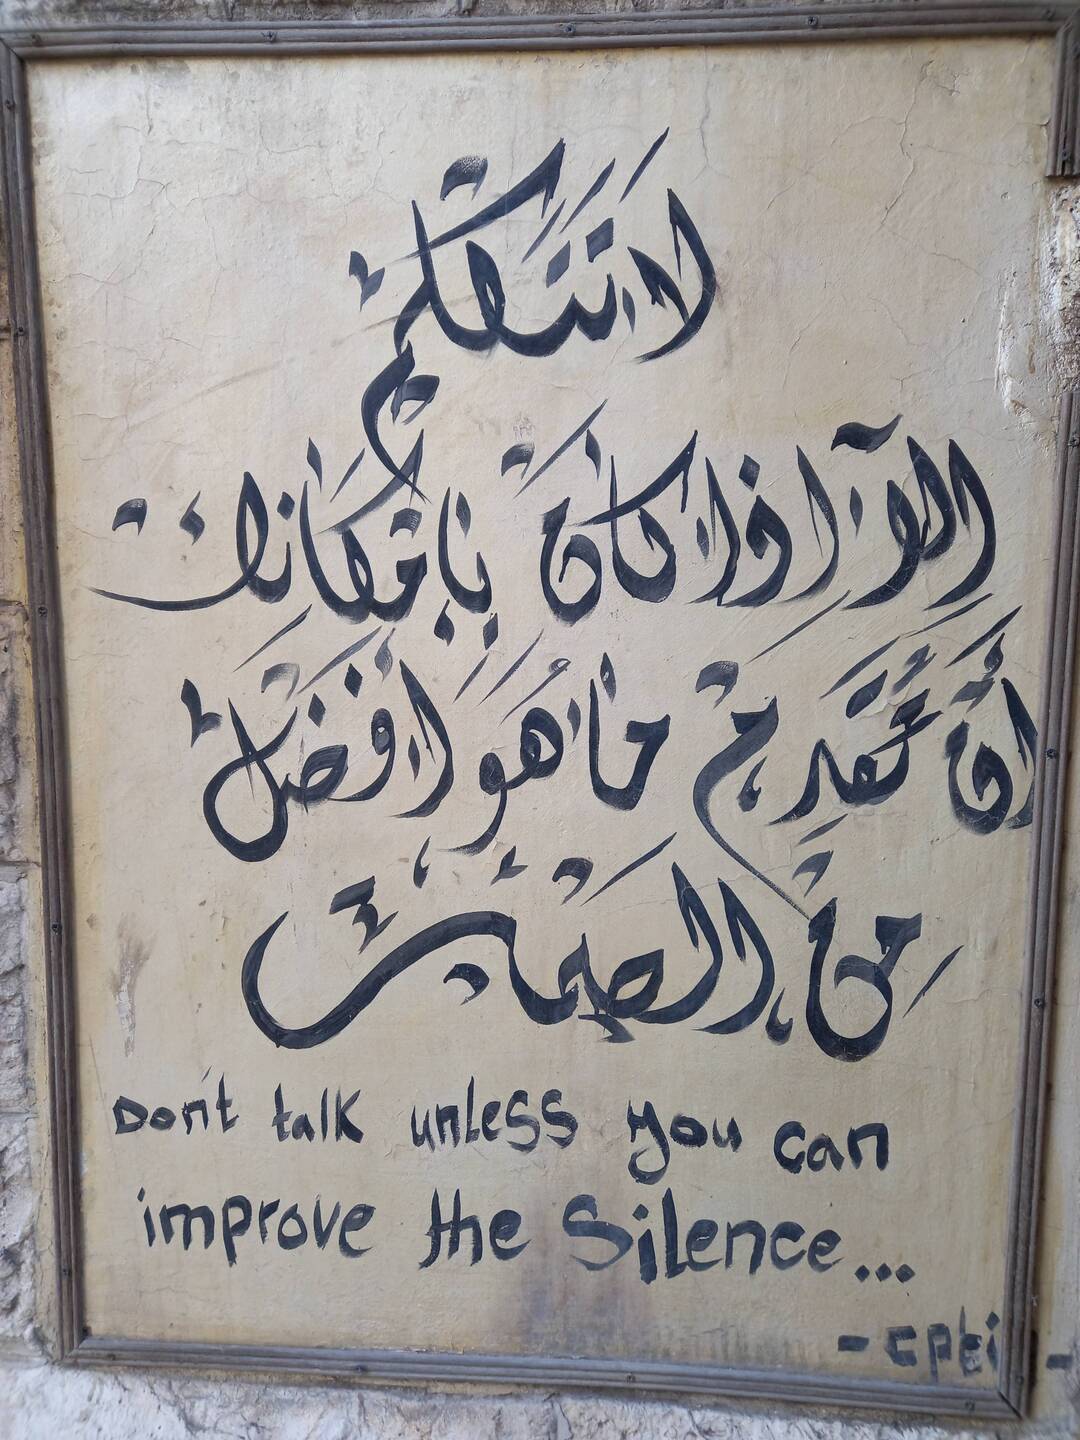 لا تتكلم
إلا إذا كان بإمكانك
أن تُقدِم ما هُوَ أفضل
من الصمت
Don't talk unless you can
improve the Silence...
- cpti -